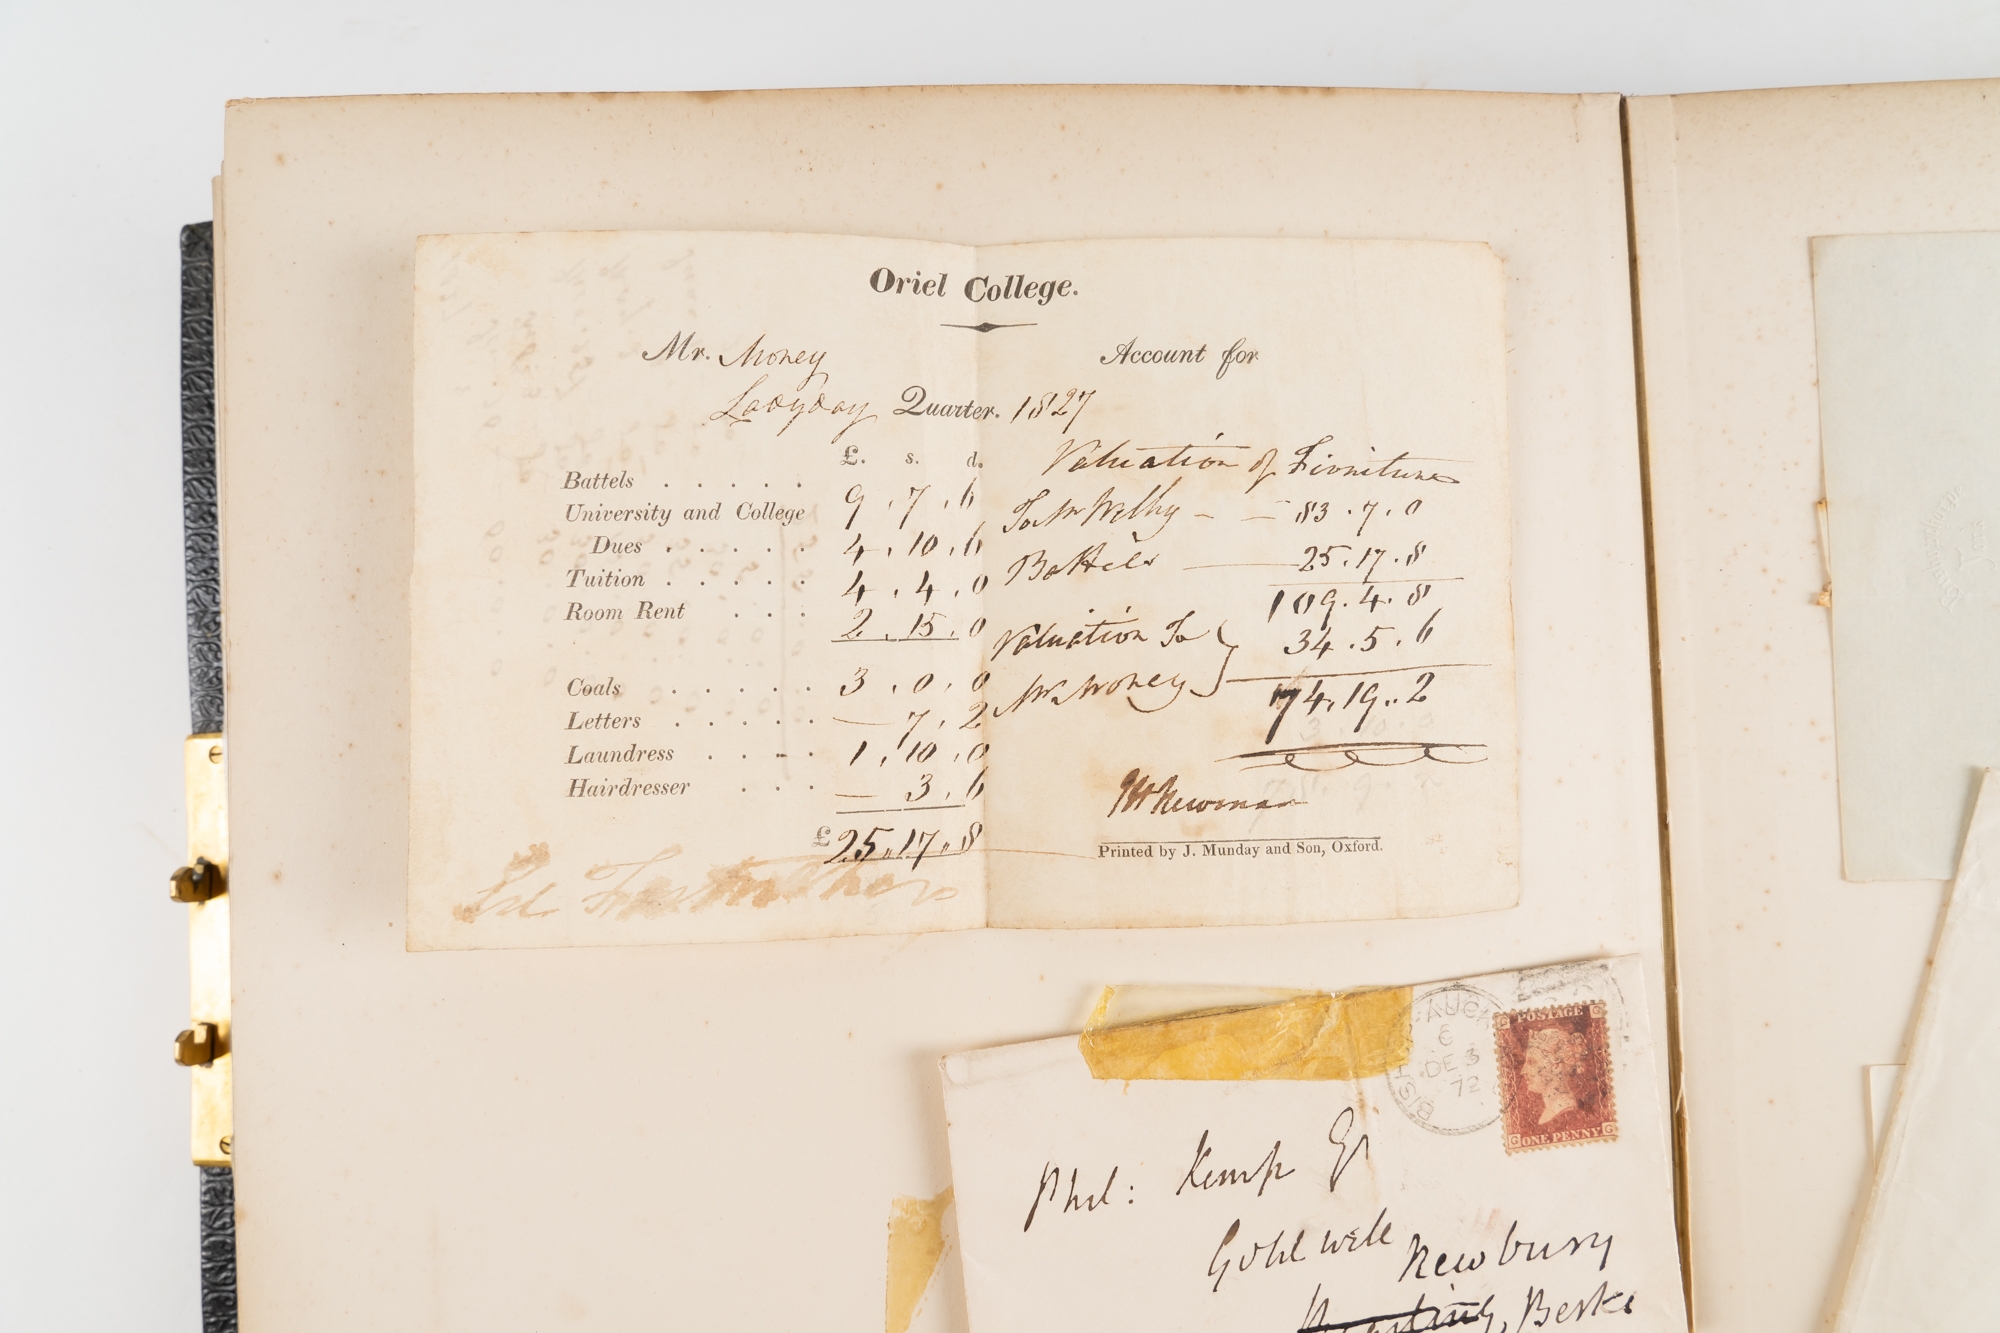 Oriel College.
Mr. Money Account for
Ladyday Quarter. 1827
£. s. d.
Battels . . . . . 9 . 7 . 6
University and College
Dues . . . . . 4 . 10 . 6
Tuition . . . . . 4 . 4 . 0
Room Rent . . . 2 . 15 . 0
Coals . . . . . 3 . 0 . 0
Letters . . . . . — 7 . 2
Laundress . . . . 1 . 10 . 0
Hairdresser . . . — 3 . 6
£ 25 . 17 . 8
Valuation of Firniture
To Mr Welby — — 83 . 7 . 0
Battels — 25 . 17 . 8
109 . 4 . 8
Valuation To 34 . 5 . 6
Mr Money
74 . 19 . 2
JH Newman
Printed by J. Munday and Son, Oxford.
BISHOP AUCK
6
DE 3
72
POSTAGE
ONE PENNY
G G
Phil: Kemp Esq
Newbury
Berks